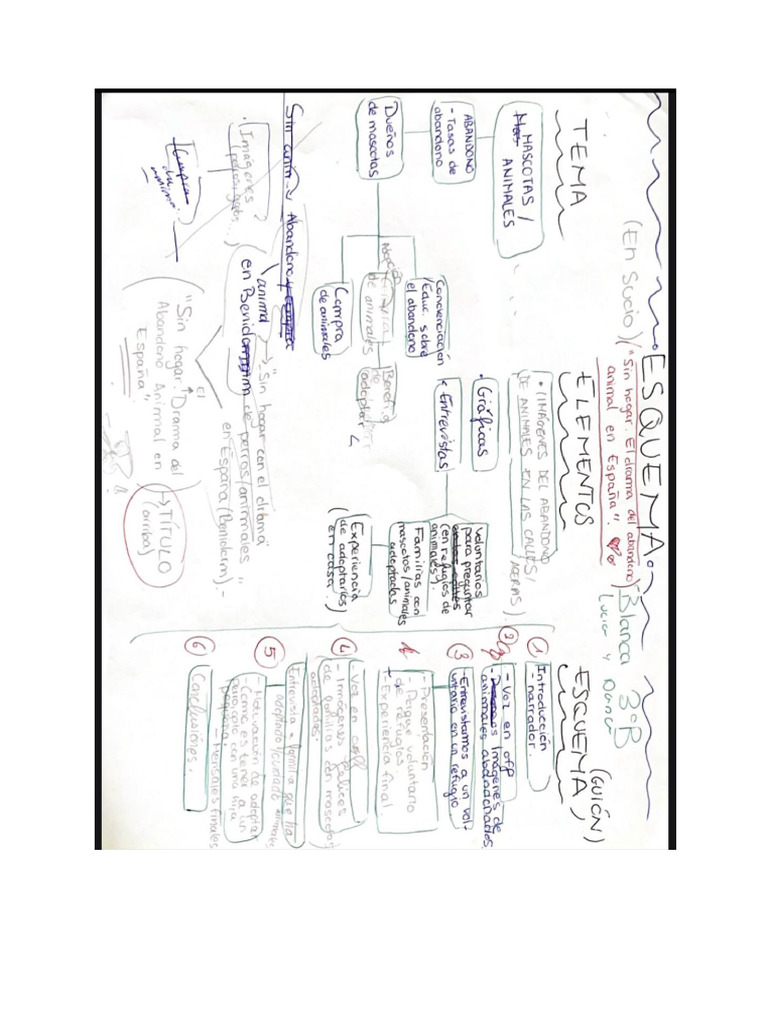 ESQUEMA
(En Sucio)
("Sin hogar. El drama del abandono
animal en España".
Blanca 3ºB
Lucía y Diana
TEMA
MASCOTAS/
ANIMALES
ABANDONO
- Tasas de
abandono
Dueños
de mascotas
Concienciación
/Educ. sobre
el abandono
Adopción
de animales
Compra
de animales
ELEMENTOS
• (IMÁGENES DEL ABANDONO
DE ANIMALES EN LAS CALLES/
• Gráficas
Entrevistas
Voluntarios
para preguntar
(en refugios de
animales).
Familias con
mascotas/animales
adoptadas
Experiencia
(de adoptarlos
en casa.)
Sin anim
Abandono y compra
animal
en Benidorm de perros/animales"
• Imágenes
Compra
"Sin hogar con el drama"
en España (Benidorm).-
"Sin hogar. Drama del
El
Abandono Animal en
España"
TÍTULO
(arriba)
ESQUEMA
(GUIÓN)
1
Introducción
- narrador.
2
- Voz en off
- Imágenes de
animales abandonados.
3
- Entrevistamos a un vol-
untario en un refugio.
- Presentación
- Porque voluntario
de refugios.
+ Experiencia final.
4
- Voz en off
- Imágenes felices
de familias con mascotas
adoptadas.
5
Entrevista a familia que ha
adoptado/cuidado animales
- Motivación de adoptar
- Como es tener a un
perro, gato con una hija
pequeña.
- Mensajes finales
6
Conclusiónes.